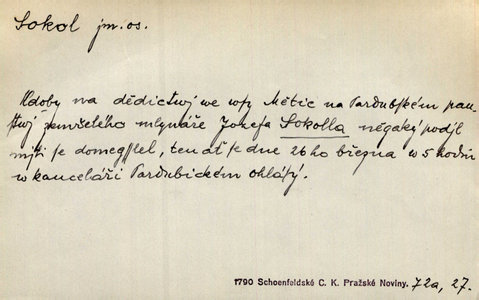 Sokol jm. os.
Kdoby na dědictwj we wsy Mětic na Pardubském pan-
stwj zemřelého mlynáře Jozefa Sokolla něgaký podjl
mjti se domegsslel, ten ať se dne 26ho března w 5 hodin
w kanceláři Pardubickém ohlásý.
1790 Schoenfeldské C. K. Pražské Noviny. 72a, 27.